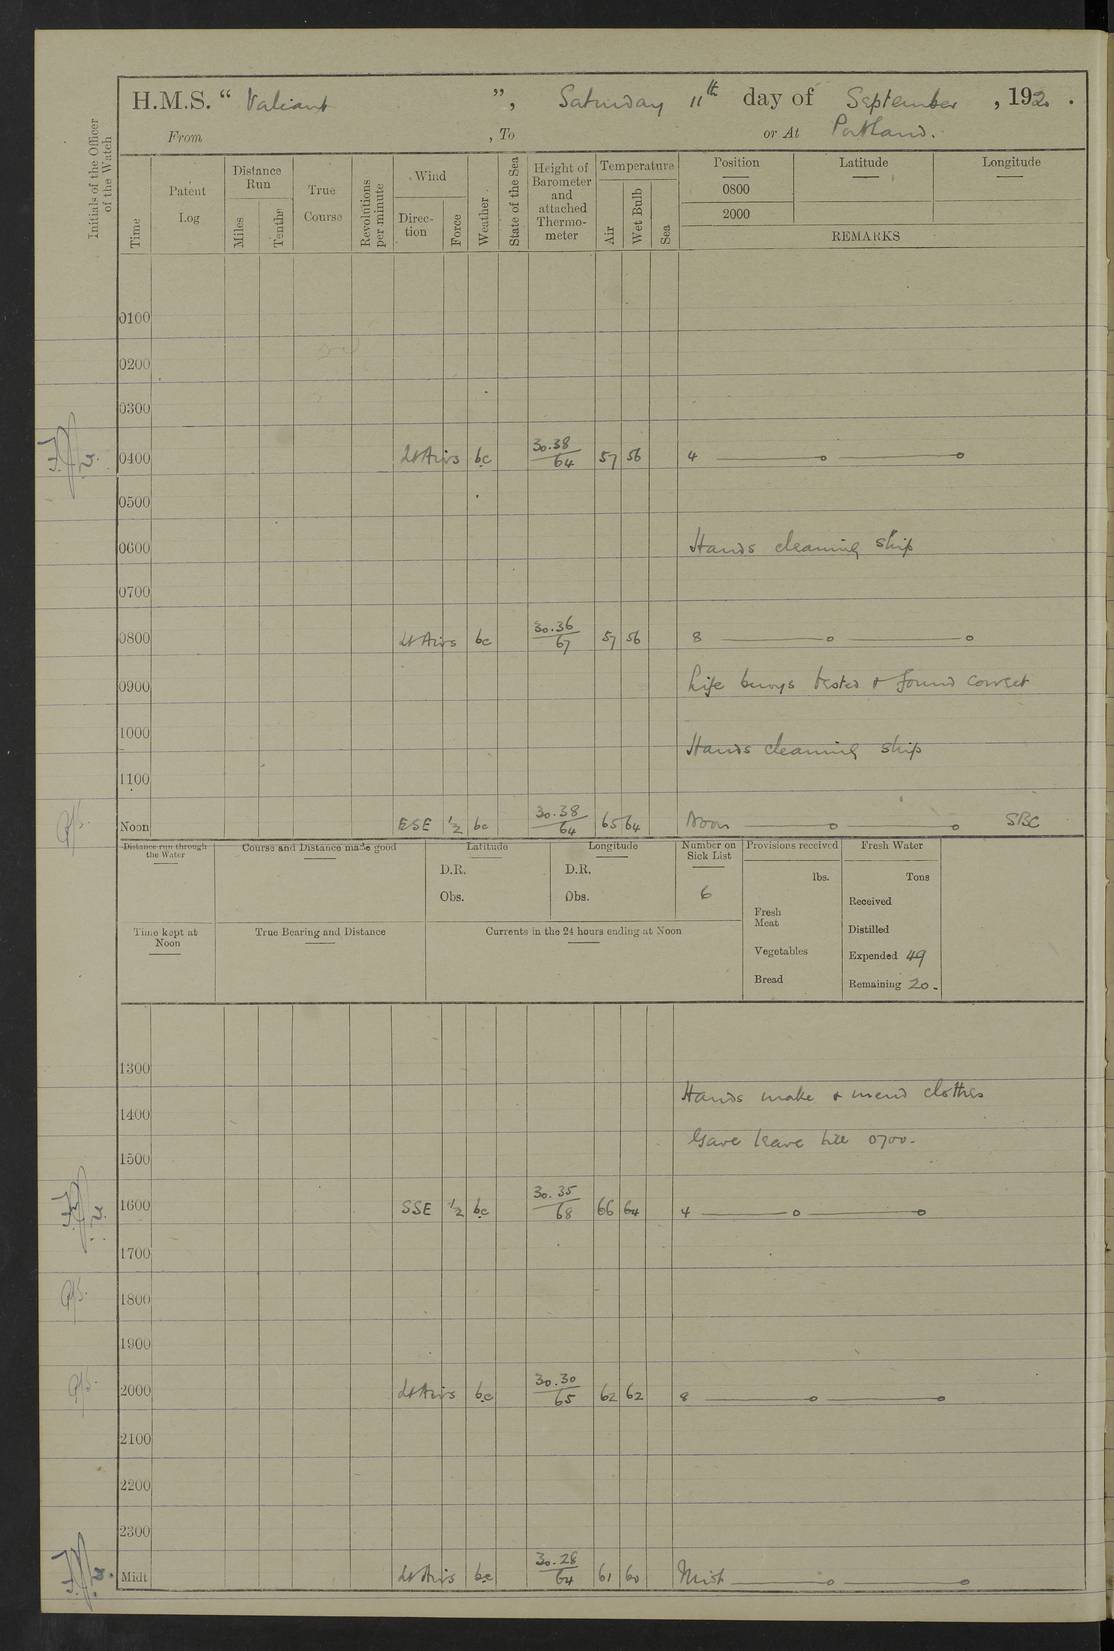 H.M.S. “ Valiant ”, Saturday 11th day of September , 1920 .
From , To or At Portland.
Initials of the Officer of the Watch
Time
Patent Log
Distance Run
Miles
Tenths
True Course
Revolutions per minute
Wind
Direction
Force
Weather
State of the Sea
Height of Barometer and attached Thermometer
Temperature
Air
Wet Bulb
Sea
Position Latitude Longitude
0800
2000
REMARKS
0100
0200
0300
0400 Lt Airs bc 30.38/64 57 56 4
0500
0600 Hands cleaning ship
0700
0800 Lt Airs bc 30.36/67 57 56 8
0900 Life buoys tested & found correct
1000 Hands cleaning ship
1100
Noon ESE ½ bc 30.38/64 65 64 Noon SBC
Distance run through the Water
Course and Distance made good
Latitude
D.R.
Obs.
Longitude
D.R.
Obs.
Number on Sick List
6
Provisions received
lbs.
Fresh Meat
Vegetables
Bread
Fresh Water
Tons
Received
Distilled
Expended 49
Remaining 20.
Time kept at Noon
True Bearing and Distance
Currents in the 24 hours ending at Noon
1300
Hands make & mend clothes
1400
Gave leave till 0700.
1500
1600 SSE ½ bc 30.35/68 66 64 4
1700
1800
1900
2000 Lt Airs bc 30.30/65 62 62 8
2100
2200
2300
Midt Lt Airs bc 30.28/64 61 60 Midt